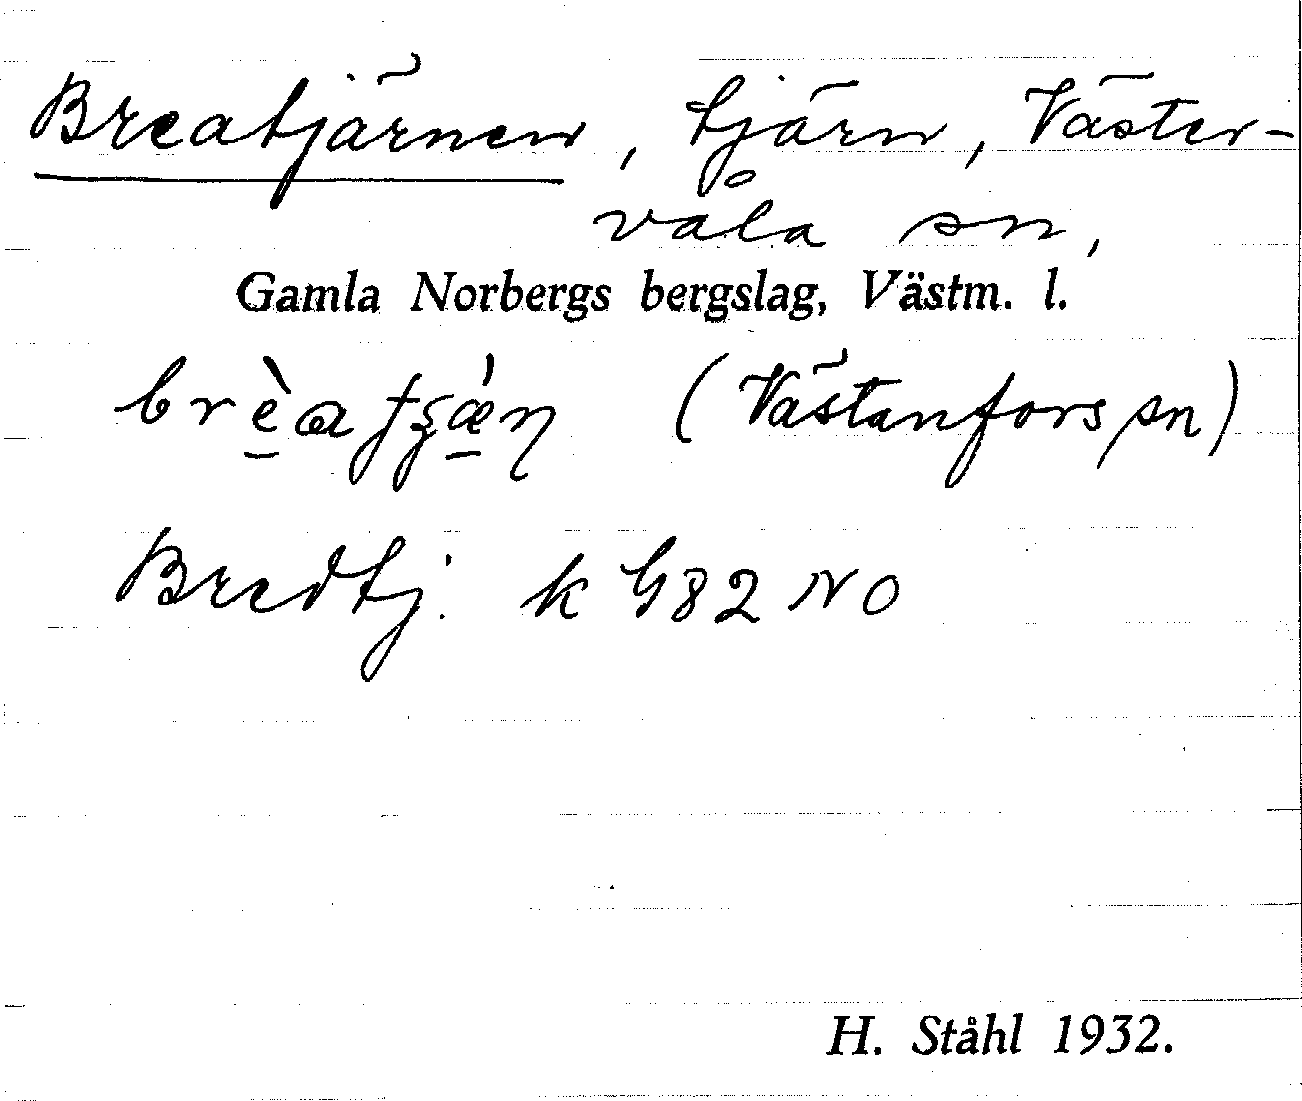 Breatjärnen, tjärn, Väster-
våla sn,
Gamla Norbergs bergslag, Västm. l.
(Västanfors sn)
Bredtj. k G82 NO
H. Ståhl 1932.